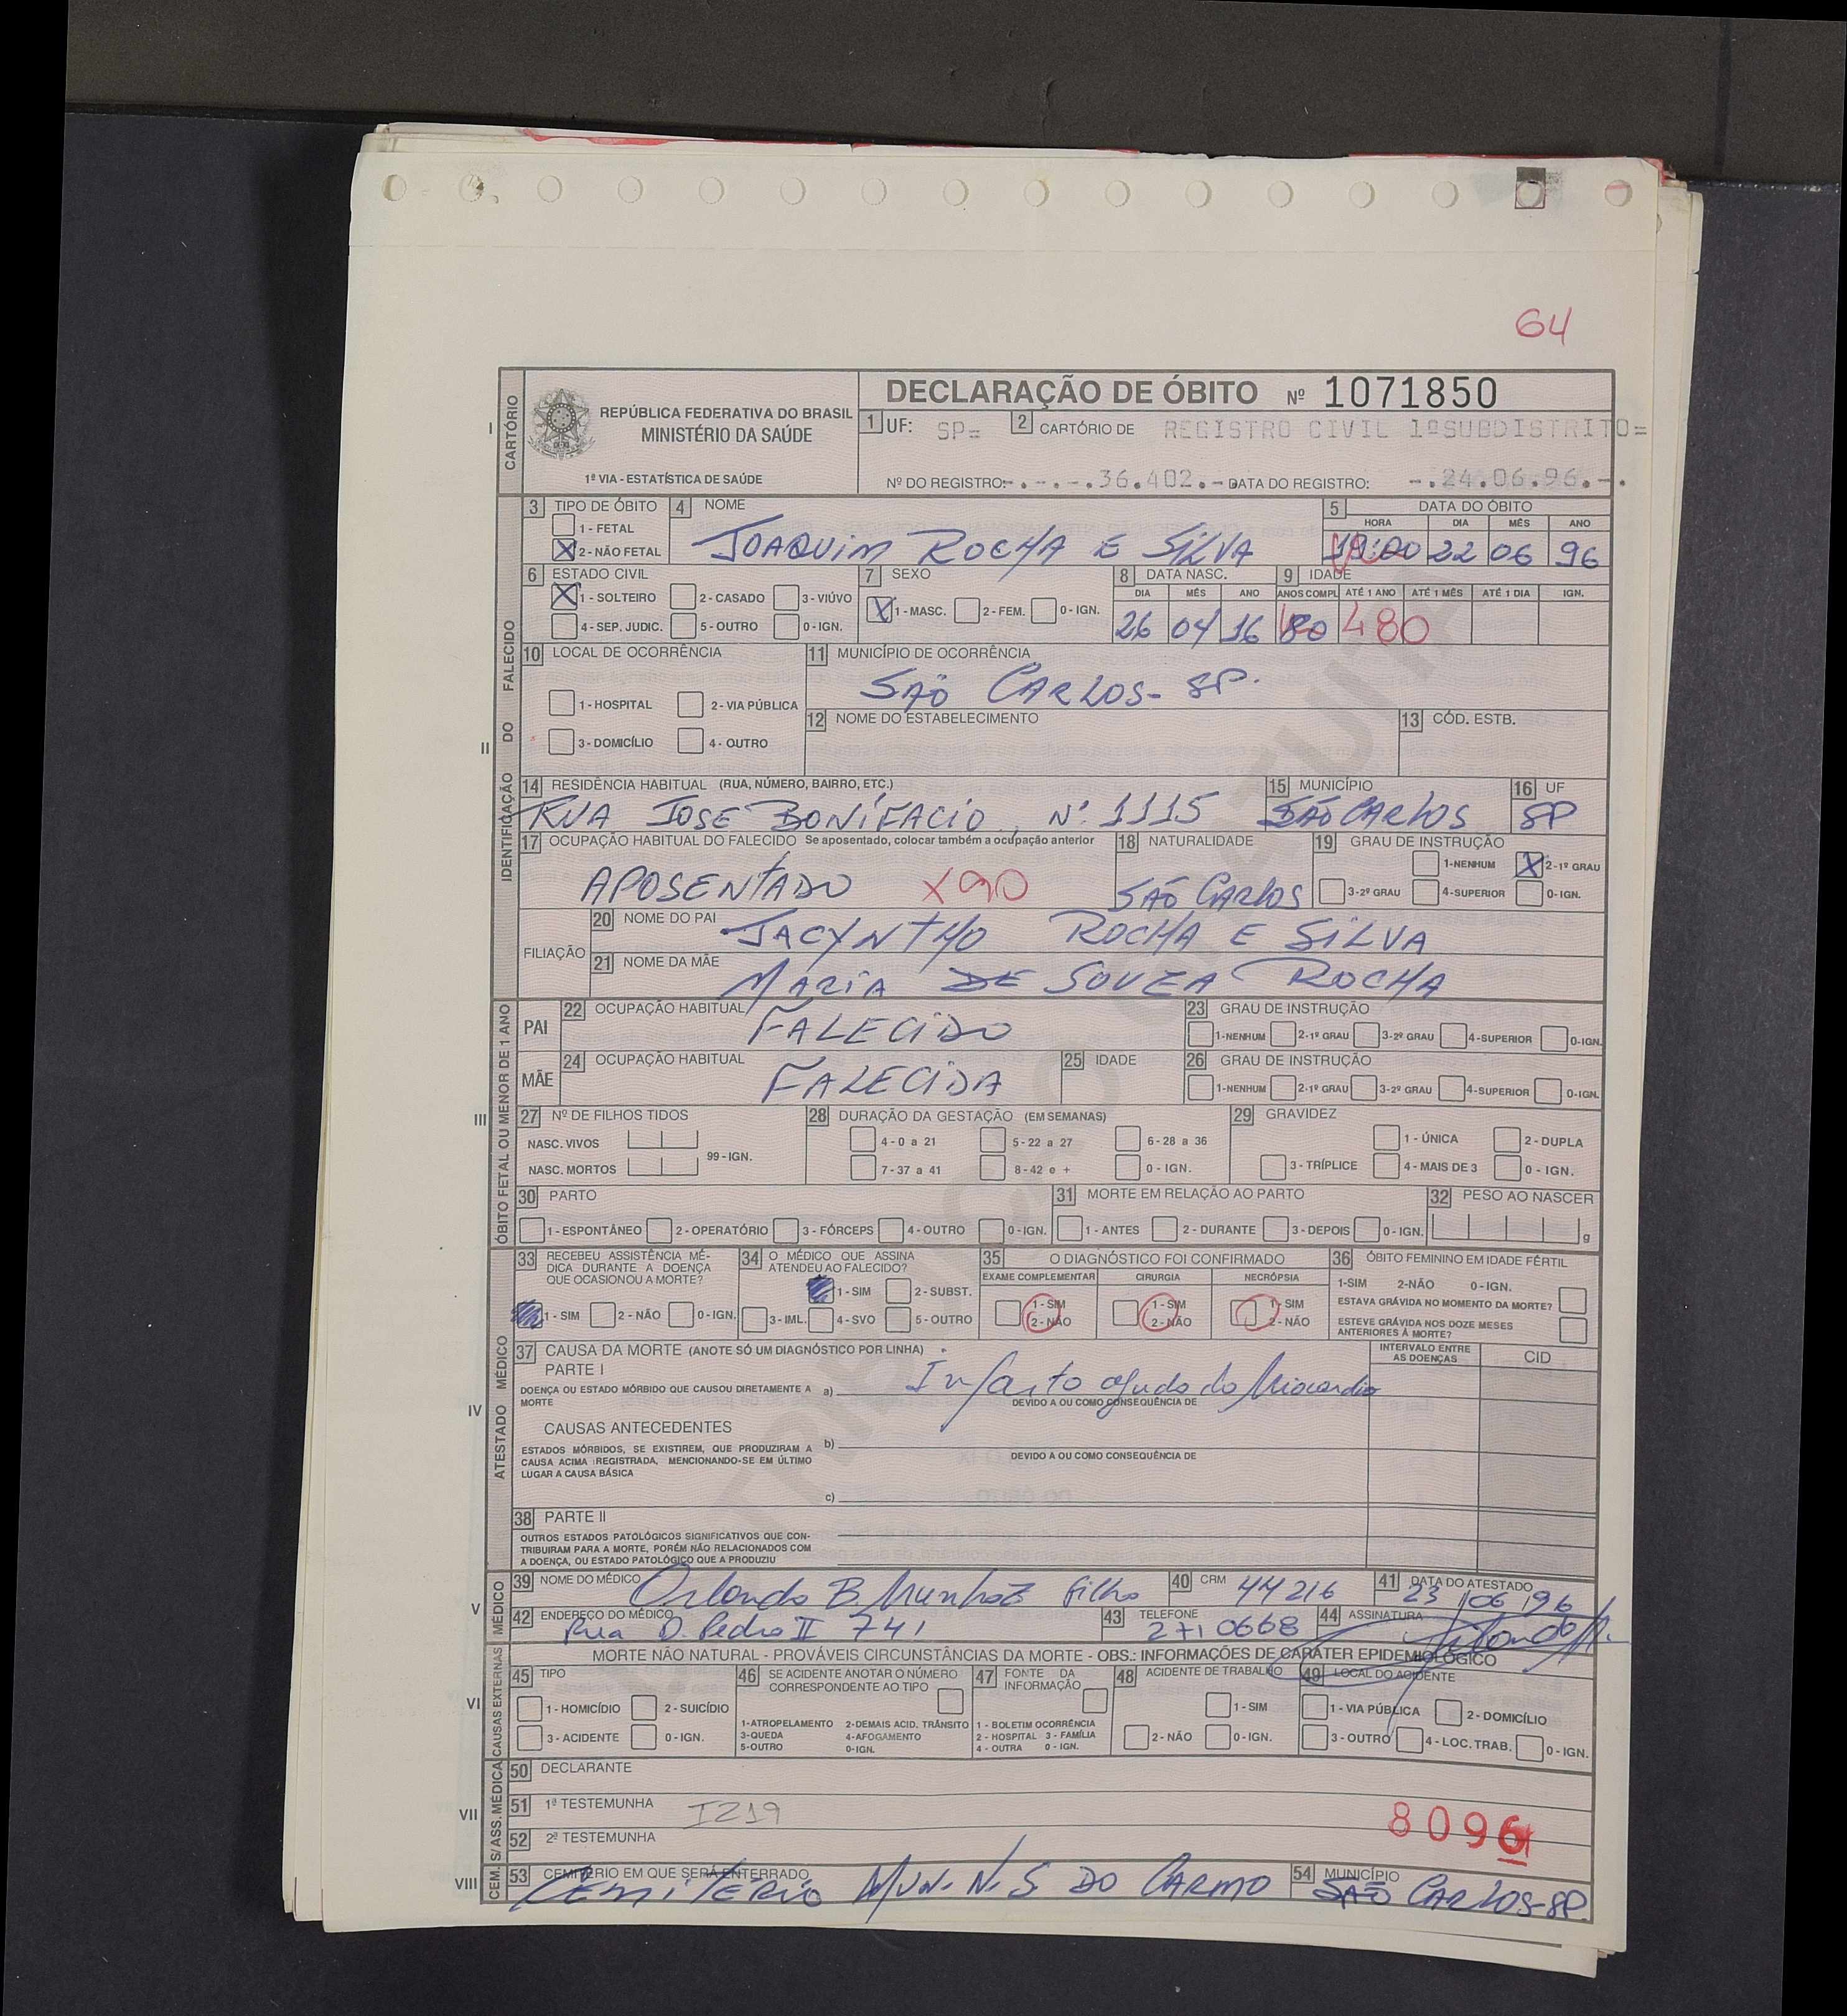 64
CARTÓRIO
REPÚBLICA FEDERATIVA DO BRASIL
MINISTÉRIO DA SAÚDE
1ª VIA - ESTATÍSTICA DE SAÚDE
DECLARAÇÃO DE ÓBITO Nº 1071850
1 UF: SP= 2 CARTÓRIO DE REGISTRO CIVIL 1ºSUBDISTRITO=
Nº DO REGISTRO:-.-.-.36.402.- DATA DO REGISTRO: -.24.06.96.-.
I
IDENTIFICAÇÃO DO FALECIDO
II
3 TIPO DE ÓBITO
1 - FETAL
X 2 - NÃO FETAL
4 NOME
JOAQUIM ROCHA E SILVA
5 DATA DO ÓBITO
HORA DIA MÊS ANO
22 06 96
6 ESTADO CIVIL
X 1 - SOLTEIRO 2 - CASADO 3 - VIÚVO
4 - SEP. JUDIC. 5 - OUTRO 0 - IGN.
7 SEXO
X 1 - MASC. 2 - FEM. 0 - IGN.
8 DATA NASC.
DIA MÊS ANO
26 04 16
9 IDADE
ANOS COMPL. ATÉ 1 ANO ATÉ 1 MÊS ATÉ 1 DIA IGN.
80 480
10 LOCAL DE OCORRÊNCIA
1 - HOSPITAL 2 - VIA PÚBLICA
3 - DOMICÍLIO 4 - OUTRO
11 MUNICÍPIO DE OCORRÊNCIA
SÃO CARLOS - SP.
12 NOME DO ESTABELECIMENTO
13 CÓD. ESTB.
14 RESIDÊNCIA HABITUAL (RUA, NÚMERO, BAIRRO, ETC.)
RUA JOSE BONIFACIO, Nº 1115
15 MUNICÍPIO
SÃO CARLOS
16 UF
SP
17 OCUPAÇÃO HABITUAL DO FALECIDO Se aposentado, colocar também a ocupação anterior
APOSENTADO X90
18 NATURALIDADE
SÃO CARLOS
19 GRAU DE INSTRUÇÃO
1-NENHUM X 2-1º GRAU
3-2º GRAU 4-SUPERIOR 0-IGN.
FILIAÇÃO
20 NOME DO PAI
JACYNTHO ROCHA E SILVA
21 NOME DA MÃE
MARIA DE SOUZA ROCHA
ÓBITO FETAL OU MENOR DE 1 ANO
III
PAI
22 OCUPAÇÃO HABITUAL
FALECIDO
23 GRAU DE INSTRUÇÃO
1-NENHUM 2-1º GRAU 3-2º GRAU 4-SUPERIOR 0-IGN.
MÃE
24 OCUPAÇÃO HABITUAL
FALECIDA
25 IDADE
26 GRAU DE INSTRUÇÃO
1-NENHUM 2-1º GRAU 3-2º GRAU 4-SUPERIOR 0-IGN.
27 Nº DE FILHOS TIDOS
NASC. VIVOS
NASC. MORTOS
99 - IGN.
28 DURAÇÃO DA GESTAÇÃO (EM SEMANAS)
4 - 0 a 21 5 - 22 a 27 6 - 28 a 36
7 - 37 a 41 8 - 42 e + 0 - IGN.
29 GRAVIDEZ
1 - ÚNICA 2 - DUPLA
3 - TRÍPLICE 4 - MAIS DE 3 0 - IGN.
30 PARTO
1 - ESPONTÂNEO 2 - OPERATÓRIO 3 - FÓRCEPS 4 - OUTRO 0 - IGN.
31 MORTE EM RELAÇÃO AO PARTO
1 - ANTES 2 - DURANTE 3 - DEPOIS 0 - IGN.
32 PESO AO NASCER
g
ATESTADO MÉDICO
IV
33 RECEBEU ASSISTÊNCIA MÉ-
DICA DURANTE A DOENÇA
QUE OCASIONOU A MORTE?
1 - SIM 2 - NÃO 0 - IGN.
34 O MÉDICO QUE ASSINA
ATENDEU AO FALECIDO?
1 - SIM 2 - SUBST.
3 - IML. 4 - SVO 5 - OUTRO
35 O DIAGNÓSTICO FOI CONFIRMADO
EXAME COMPLEMENTAR CIRURGIA NECRÓPSIA
1 - SIM 1 - SIM 1 - SIM
2 - NÃO 2 - NÃO 2 - NÃO
36 ÓBITO FEMININO EM IDADE FÉRTIL
1-SIM 2-NÃO 0 - IGN.
ESTAVA GRÁVIDA NO MOMENTO DA MORTE?
ESTEVE GRÁVIDA NOS DOZE MESES
ANTERIORES À MORTE?
37 CAUSA DA MORTE (ANOTE SÓ UM DIAGNÓSTICO POR LINHA)
PARTE I
INTERVALO ENTRE
AS DOENÇAS
CID
DOENÇA OU ESTADO MÓRBIDO QUE CAUSOU DIRETAMENTE A
MORTE
a) Infarto agudo do Miocardio
DEVIDO A OU COMO CONSEQUÊNCIA DE
CAUSAS ANTECEDENTES
ESTADOS MÓRBIDOS, SE EXISTIREM, QUE PRODUZIRAM A
CAUSA ACIMA REGISTRADA, MENCIONANDO-SE EM ÚLTIMO
LUGAR A CAUSA BÁSICA
b)
DEVIDO A OU COMO CONSEQUÊNCIA DE
c)
38 PARTE II
OUTROS ESTADOS PATOLÓGICOS SIGNIFICATIVOS QUE CON-
TRIBUIRAM PARA A MORTE, PORÉM NÃO RELACIONADOS COM
A DOENÇA, OU ESTADO PATOLÓGICO QUE A PRODUZIU
MÉDICO
V
39 NOME DO MÉDICO
Orlando B. Munhoz Filho
40 CRM 44216
41 DATA DO ATESTADO
23/06/96
42 ENDEREÇO DO MÉDICO
Rua D. Pedro II 741
43 TELEFONE
2710668
44 ASSINATURA
CAUSAS EXTERNAS
VI
MORTE NÃO NATURAL - PROVÁVEIS CIRCUNSTÂNCIAS DA MORTE - OBS.: INFORMAÇÕES DE CARÁTER EPIDEMIOLÓGICO
45 TIPO
1 - HOMICÍDIO 2 - SUICÍDIO
3 - ACIDENTE 0 - IGN.
46 SE ACIDENTE ANOTAR O NÚMERO
CORRESPONDENTE AO TIPO
1-ATROPELAMENTO 2-DEMAIS ACID. TRÂNSITO
3-QUEDA 4-AFOGAMENTO
5-OUTRO 0-IGN.
47 FONTE DA
INFORMAÇÃO
1 - BOLETIM OCORRÊNCIA
2 - HOSPITAL 3 - FAMÍLIA
4 - OUTRA 0 - IGN.
48 ACIDENTE DE TRABALHO
1 - SIM
2 - NÃO 0 - IGN.
49 LOCAL DO ACIDENTE
1 - VIA PÚBLICA 2 - DOMICÍLIO
3 - OUTRO 4 - LOC. TRAB. 0 - IGN.
S/ ASS. MÉDICA
VII
50 DECLARANTE
51 1ª TESTEMUNHA I219
8096
52 2ª TESTEMUNHA
CEM.
VIII
53 CEMITÉRIO EM QUE SERÁ ENTERRADO
CEMITÉRIO MUN. N. S DO CARMO
54 MUNICÍPIO
SÃO CARLOS-SP.